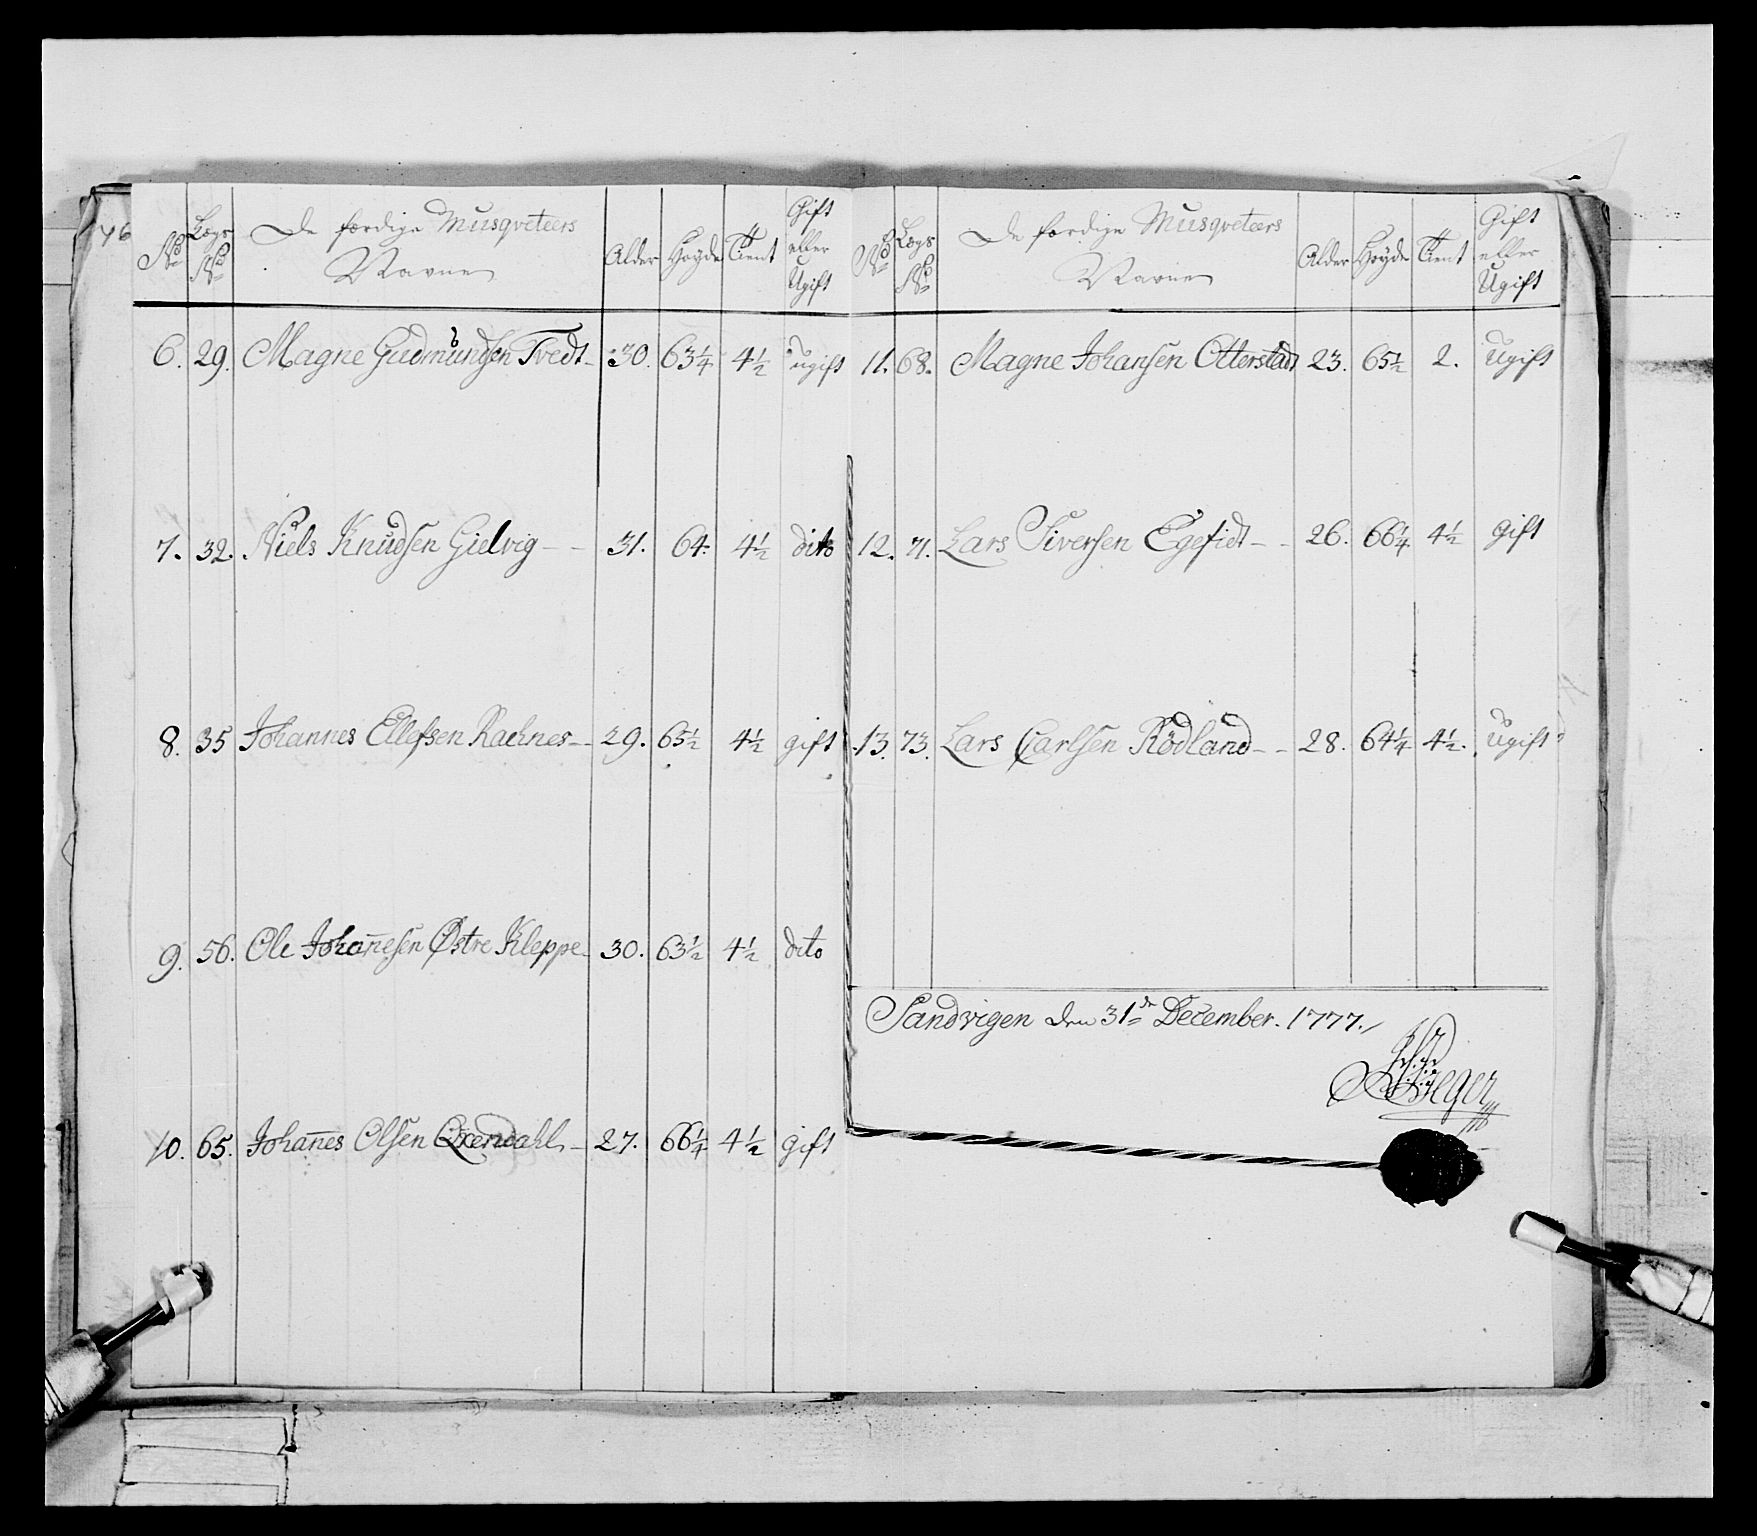 46
No Lægs No De færdige Musqveteers Navne Alder Høyde Tient Gift eller Ugift
6. 29. Magne Gudmundsen Tvedt 30. 63¼ 4½ ugift
7. 32. Niels Knudsen Gielvig 31. 64. 4½ dito
8. 35 Johannes Ellefsen Raknes 29. 65½ 4½ gift
9. 56. Ole Johan̄esen Østre Kleppe 30. 63½ 4½ dito
10. 65. Johan̄es Olsen 27. 66¼ 4½ gift
No Lægs No De færdige Musqveteers Navne Alder Høyde Tient Gift eller Ugift
11. 68. Magne Johansen Otterstad 23. 65½ 2. Ugift
12. 71. Lars Siversen Egefidt 26. 66¼ 4½ gift
13. 73. Lars Carlsen Rödland 28. 64¼ 4½. Ugift
Sandvigen den 31de December. 1777.